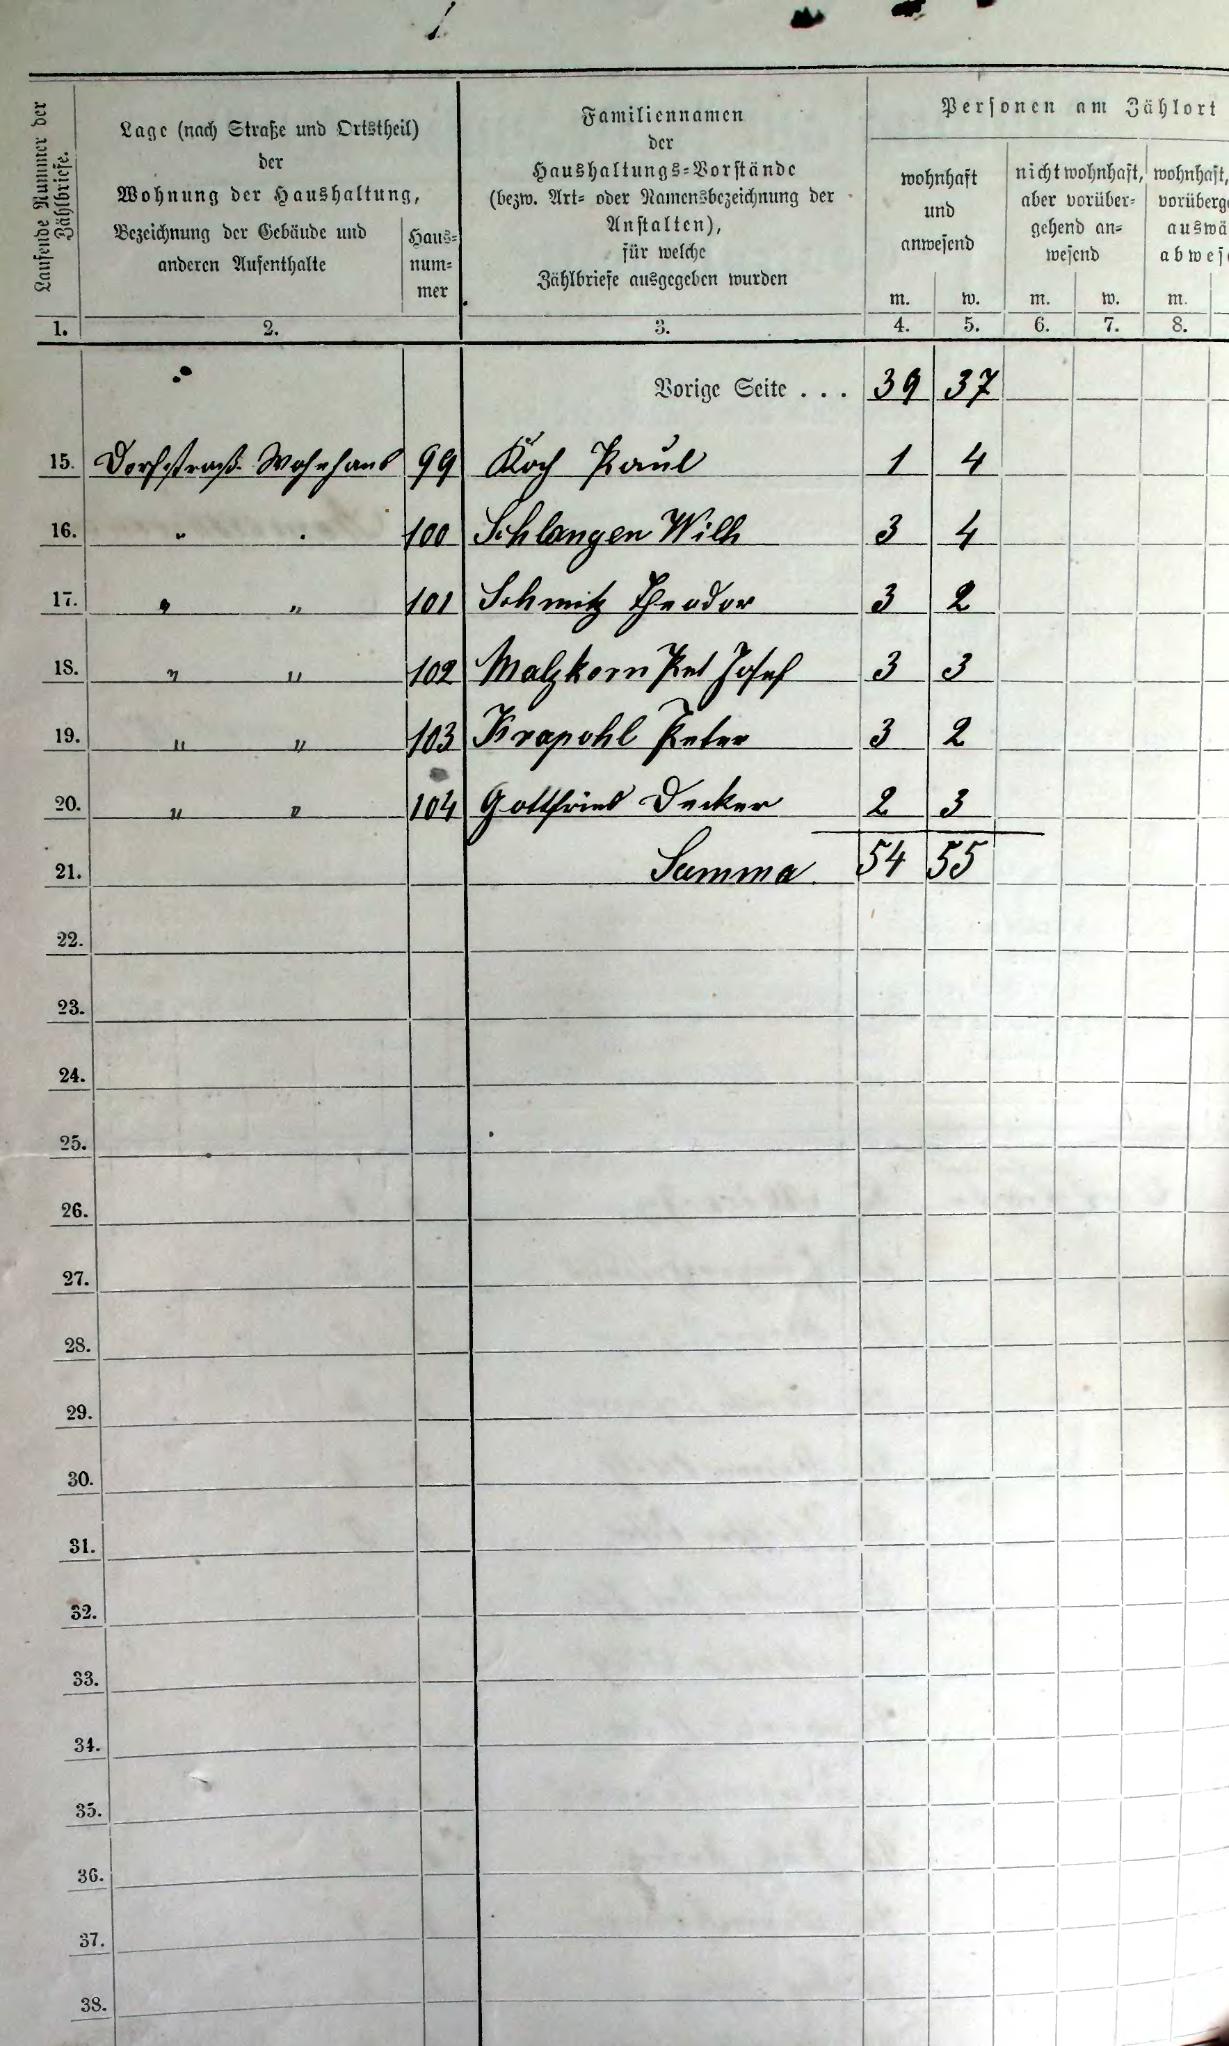 Laufende Nummer der Zählbriefe.
Lage (nach Straße und Ortstheil)
der
Wohnung der Haushaltung,
Bezeichnung der Gebäude und
anderen Aufenthalte
Haus=
num=
mer
Familiennamen
der
Haushaltungs=Vorstände
(bezw. Art= oder Namensbezeichnung der
Anstalten),
für welche
Zählbriefe ausgegeben wurden
Personen am Zählort
wohnhaft
und
anwesend
nicht wohnhaft,
aber vorüber=
gehend an=
wesend
wohnhaft,
vorüberge
auswä
abwes
m. w. m. w. m.
1. 2. 3. 4. 5. 6. 7. 8.
Vorige Seite . . . 39 37
15. Dorfstraß Wohnhaus 99 Koch Paul 1 4
16. " " 100 Schlangen Wilh 3 4
17. " " 101 Schmitz Theodor 3 2
18. " " 102 Malzkorn Pet Josef 3 3
19. " " 103 Krapohl Peter 3 2
20. " " 104 Gottfried Decker 2 3
21. Summa 54 55
22.
23.
24.
25.
26.
27.
28.
29.
30.
31.
32.
33.
34.
35.
36.
37.
38.